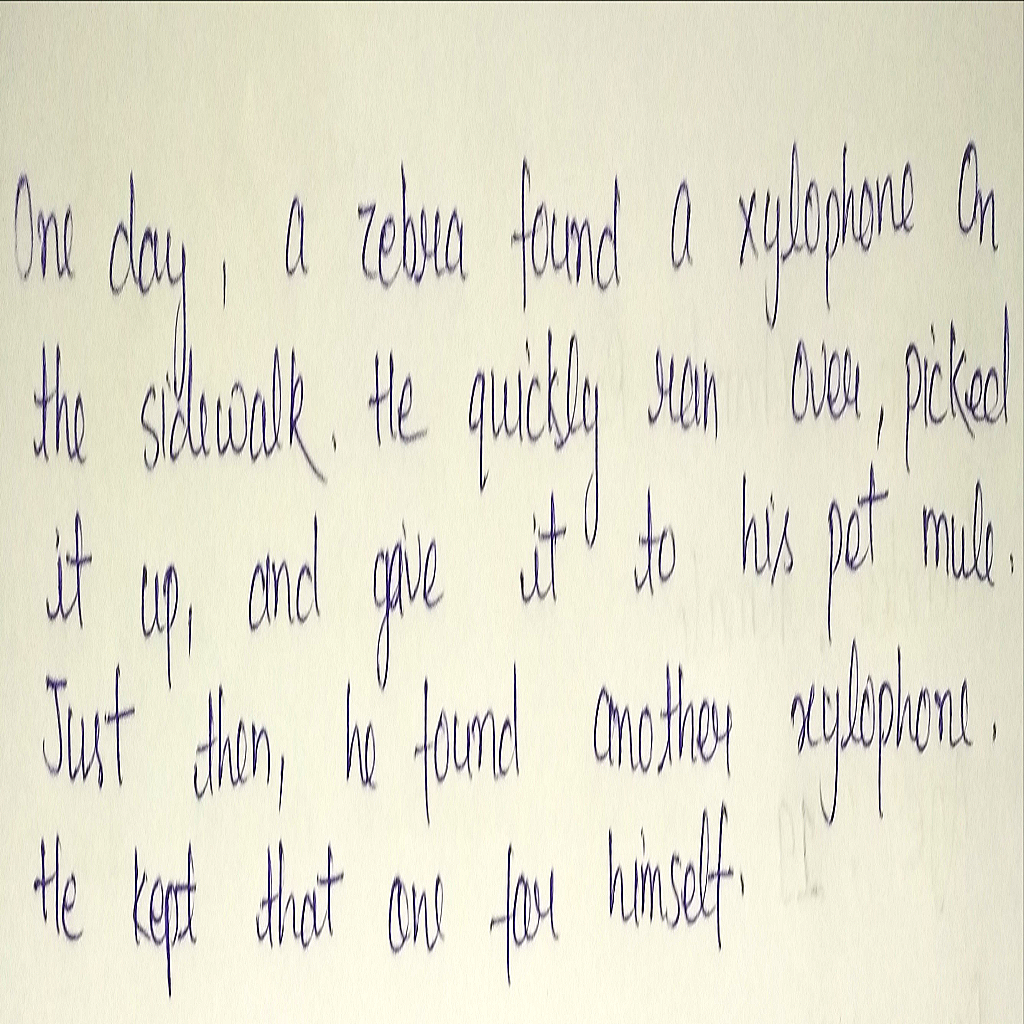 One day, a zebra found a xylophone on
the sidewalk. He quickly ran over, picked
it up, and gave it to his pet mule.
Just then, he found another xylophone.
He kept that one for himself.